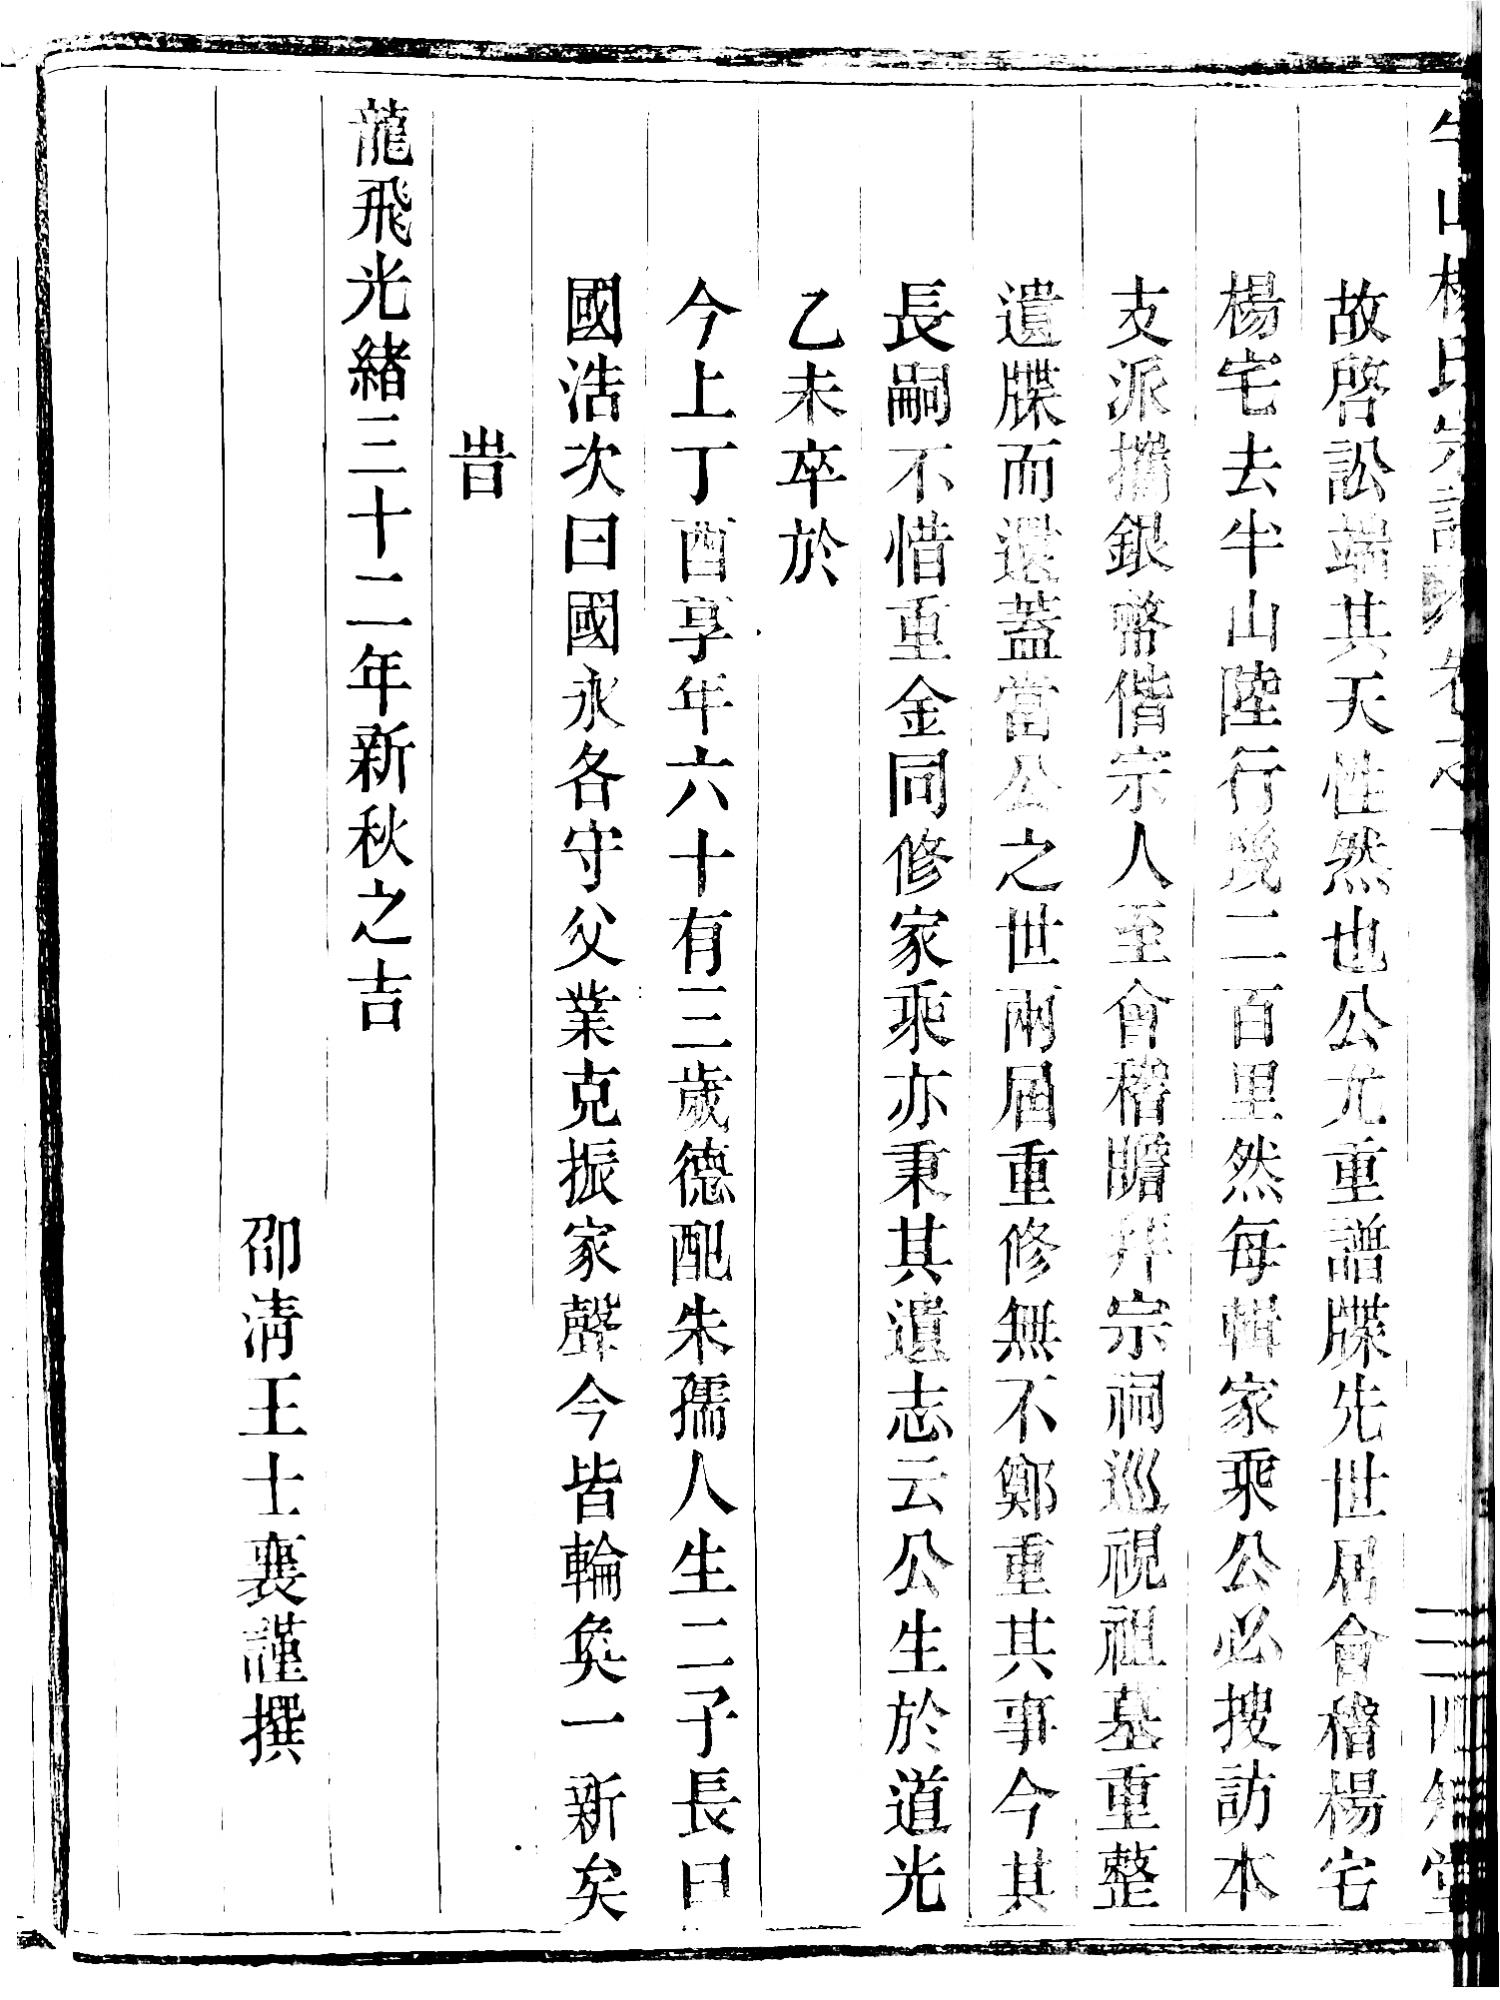 半山楊氏宗譜 卷之一 三 四知堂
故啓訟端其天性然也公尤重譜牒先世居會稽楊宅
楊宅去半山陸行幾二百里然每輯家乘公必搜訪本
支派攜銀幣偕宗人至會稽瞻拜宗祠巡視祖墓重整
遺牒而還蓋當公之世兩屆重修無不鄭重其事今其
長嗣不惜重金同修家乘亦秉其遺志云公生於道光
乙未卒於
今上丁酉享年六十有三歲德配朱孺人生二子長曰
國浩次曰國永各守父業克振家聲今皆輪奐一新矣
旹
龍飛光緒三十二年新秋之吉
邵清王士襄謹撰